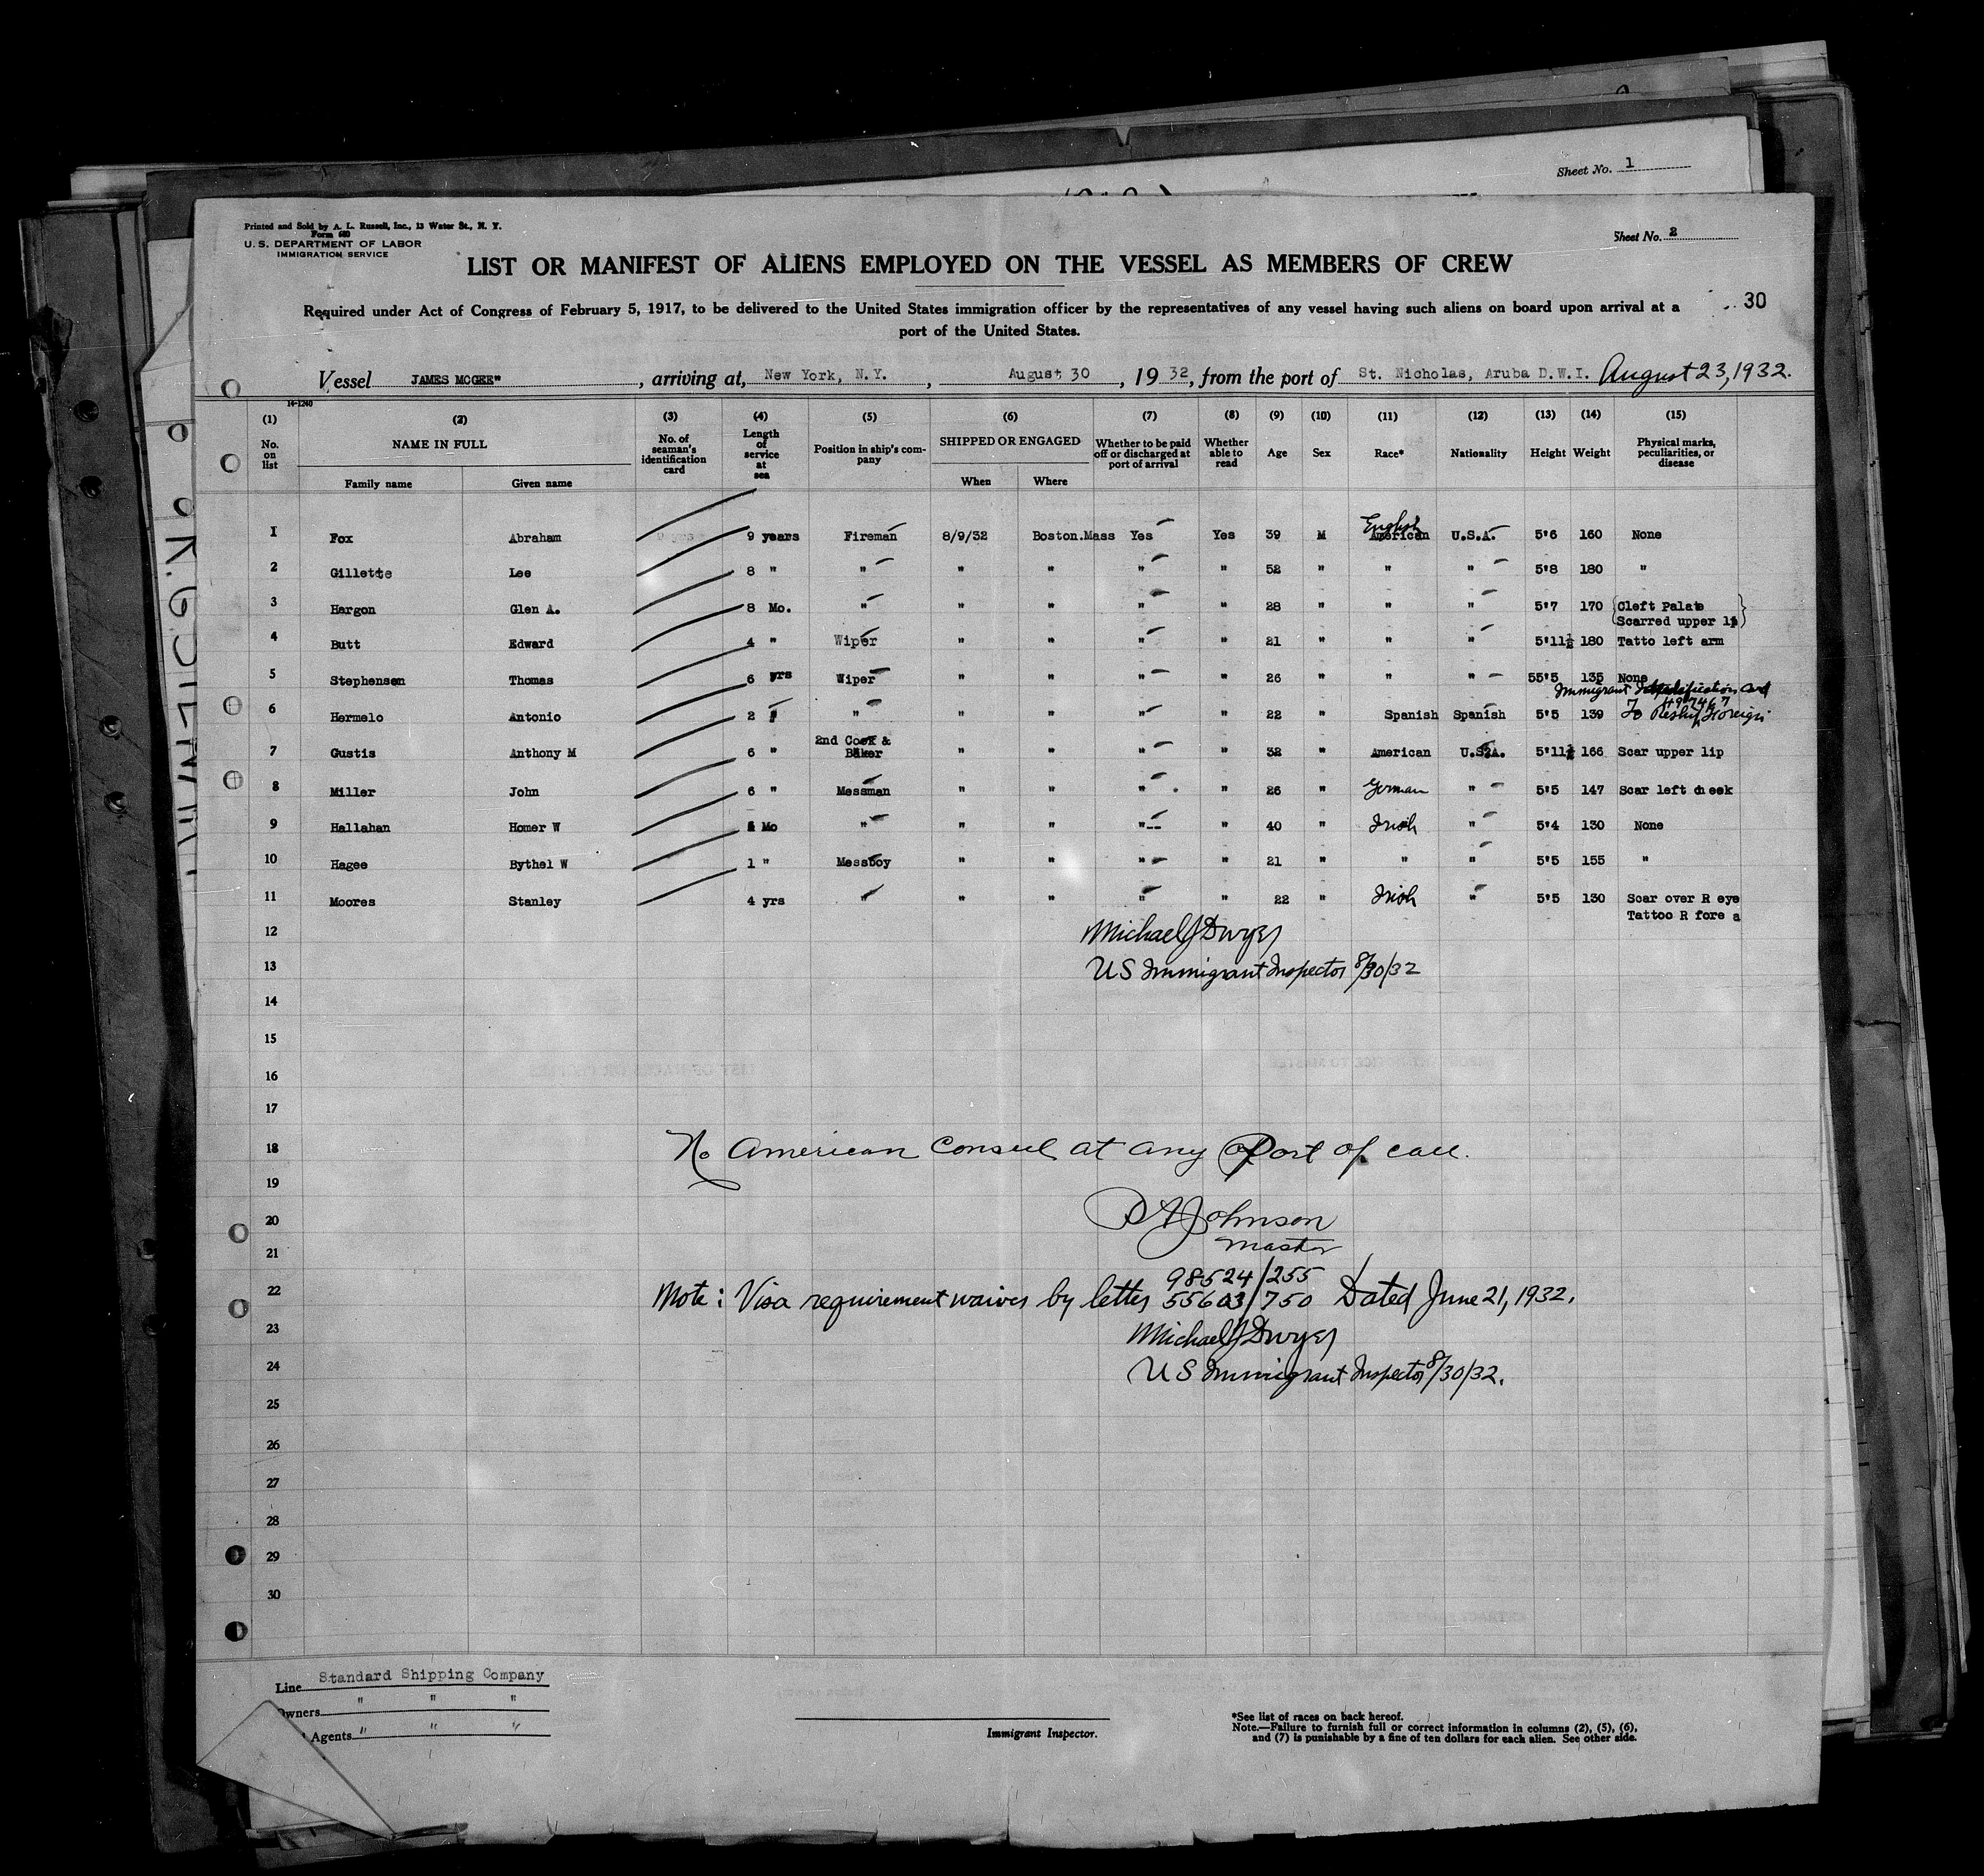 Sheet No. 1
Printed and Sold by A. L. Russell, Inc., 13 Water St., N. Y.
Form 680
U. S. DEPARTMENT OF LABOR
IMMIGRATION SERVICE
Sheet No. 2
LIST OR MANIFEST OF ALIENS EMPLOYED ON THE VESSEL AS MEMBERS OF CREW
Required under Act of Congress of February 5, 1917, to be delivered to the United States immigration officer by the representatives of any vessel having such aliens on board upon arrival at a
port of the United States.
30
Vessel JAMES MCGEE" , arriving at, New York, N.Y. , August 30 , 19 32, from the port of St. Nicholas, Aruba D.W.I. August 23, 1932.
14-1240
(1) (2) (3) (4) (5) (6) (7) (8) (9) (10) (11) (12) (13) (14) (15)
No. on list NAME IN FULL Family name Given name No. of seaman's identification card Length of service at sea Position in ship's company SHIPPED OR ENGAGED When Where Whether to be paid off or discharged at port of arrival Whether able to read Age Sex Race* Nationality Height Weight Physical marks, peculiarities, or disease
English
1 Fox Abraham 9 years Fireman 8/9/32 Boston.Mass Yes Yes 39 M American U.S.A. 5'6 160 None
2 Gillette Lee 8 " " " " " " 52 " " " 5'8 180 "
3 Hargon Glen A. 8 Mo. " " " " " 28 " " " 5'7 170 Cleft Palate
Scarred upper lip
4 Butt Edward 4 " Wiper " " " " 21 " " " 5'11½ 180 Tatto left arm
5 Stephensen Thomas 6 yrs Wiper " " " " 26 " " " 55'5 135 None
Immigrant Identification Card
6 Hermelo Antonio 2 " " " " " 22 " Spanish Spanish 5'5 139 To Reship Foreign
7 Gustis Anthony M 6 " 2nd Cook & Baker " " " " 32 " American U.S.A. 5'11½ 166 Scar upper lip
8 Miller John 6 " Messman " " " " 26 " German " 5'5 147 Scar left cheek
9 Hallahan Homer W Mo " " " " " 40 " Irish " 5'4 130 None
10 Hagee Bythel W 1 " Messboy " " " " 21 " " " 5'5 155 "
11 Moores Stanley 4 yrs " " " " " 22 " Irish " 5'5 130 Scar over R eye
Tattoo R fore a
12 Michael J Dwyer
13 US Immigrant Inspector 8/30/32
14
15
16
17
18 No American Consul at any Port of call.
19
20 Johnson
21 Master
98524/255
22 Note: Visa requirement waived by letter 55603/750 Dated June 21, 1932.
23 Michael J Dwyer
24 US Immigrant Inspector 8/30/32.
25
26
27
28
29
30
Line Standard Shipping Company
Owners " " "
Agents " " "
Immigrant Inspector.
*See list of races on back hereof.
Note.—Failure to furnish full or correct information in columns (2), (5), (6),
and (7) is punishable by a fine of ten dollars for each alien. See other side.